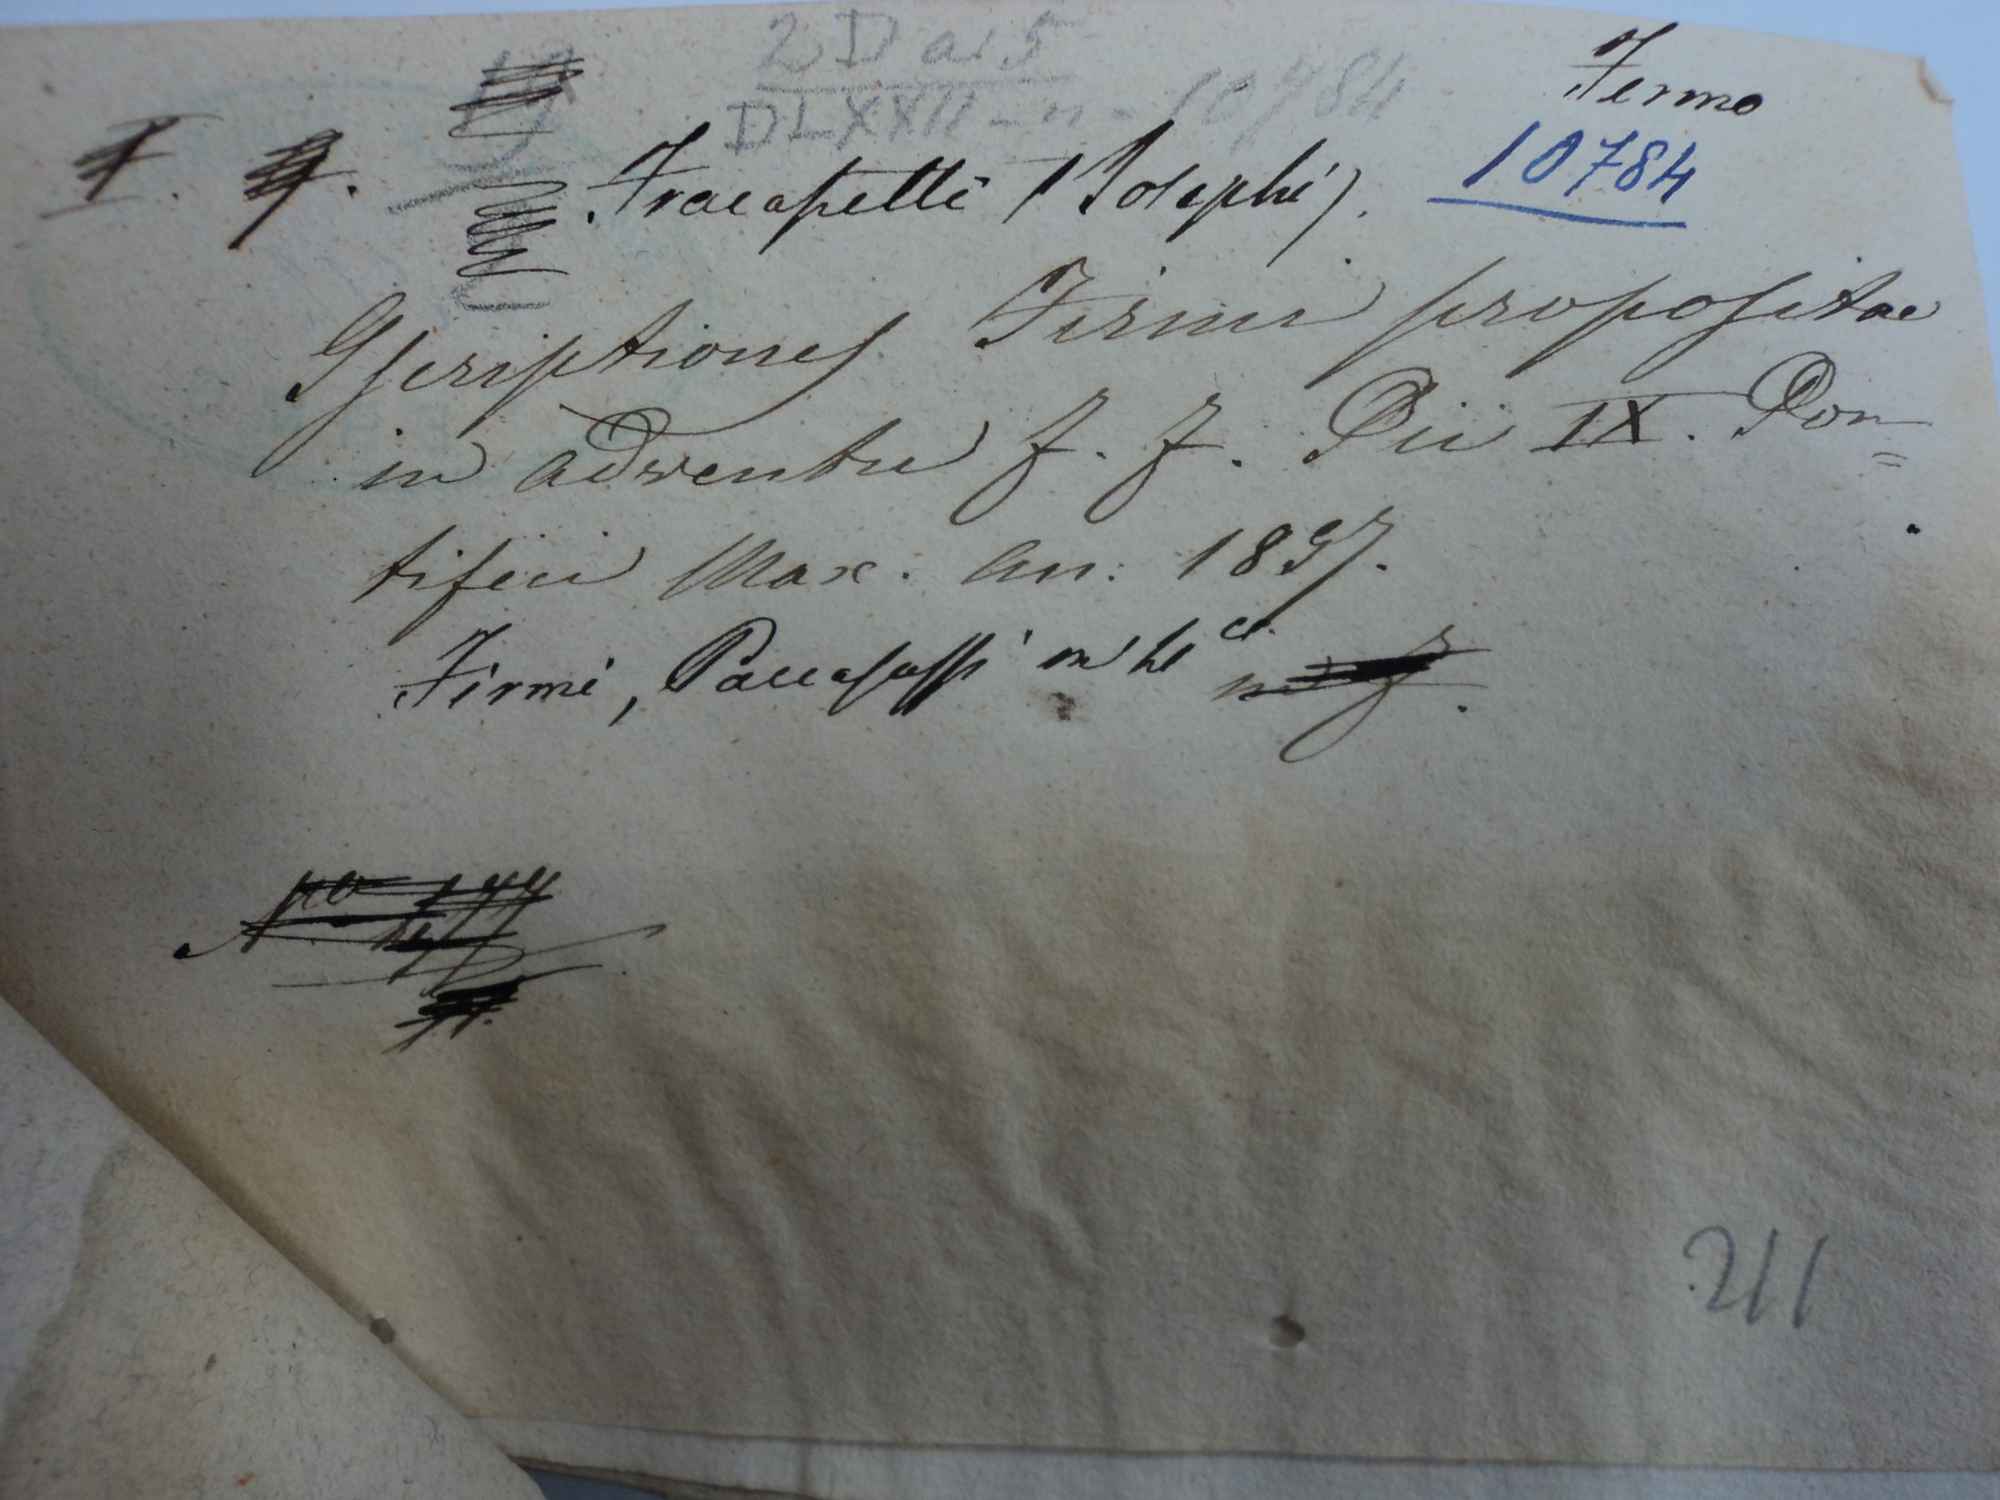 2 D a. 5
DLXXII - n - 10784
Fermo
10784
Fracassetti (Josephi).
Iscriptiones Firmi propositae
in adventu J. J. Pii IX. Pon=
tificis Max. an. 1857.
Firmi, Paccasassi
211